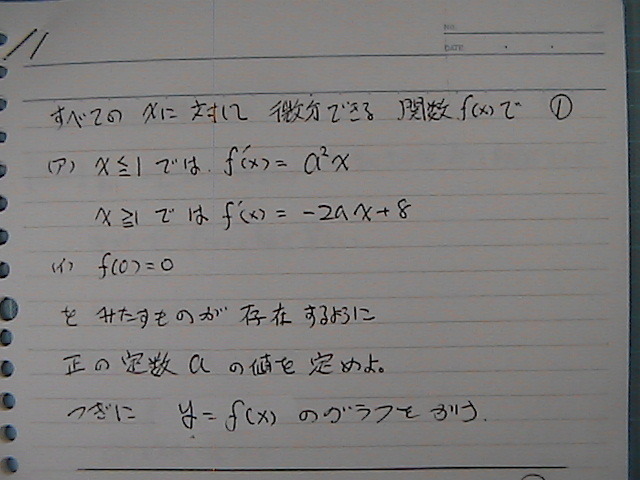 NO.
DATE
11
すべての xに 対して 微分できる 関数 f(x)で ①
(ア) x≦1 では f'(x) = a²x
x≧1 では f'(x) = -2ax+8
(イ) f(0)=0
を みたすものが 存在するように
正の 定数 a の値を 定めよ。
つぎに y = f(x) のグラフを かけ.